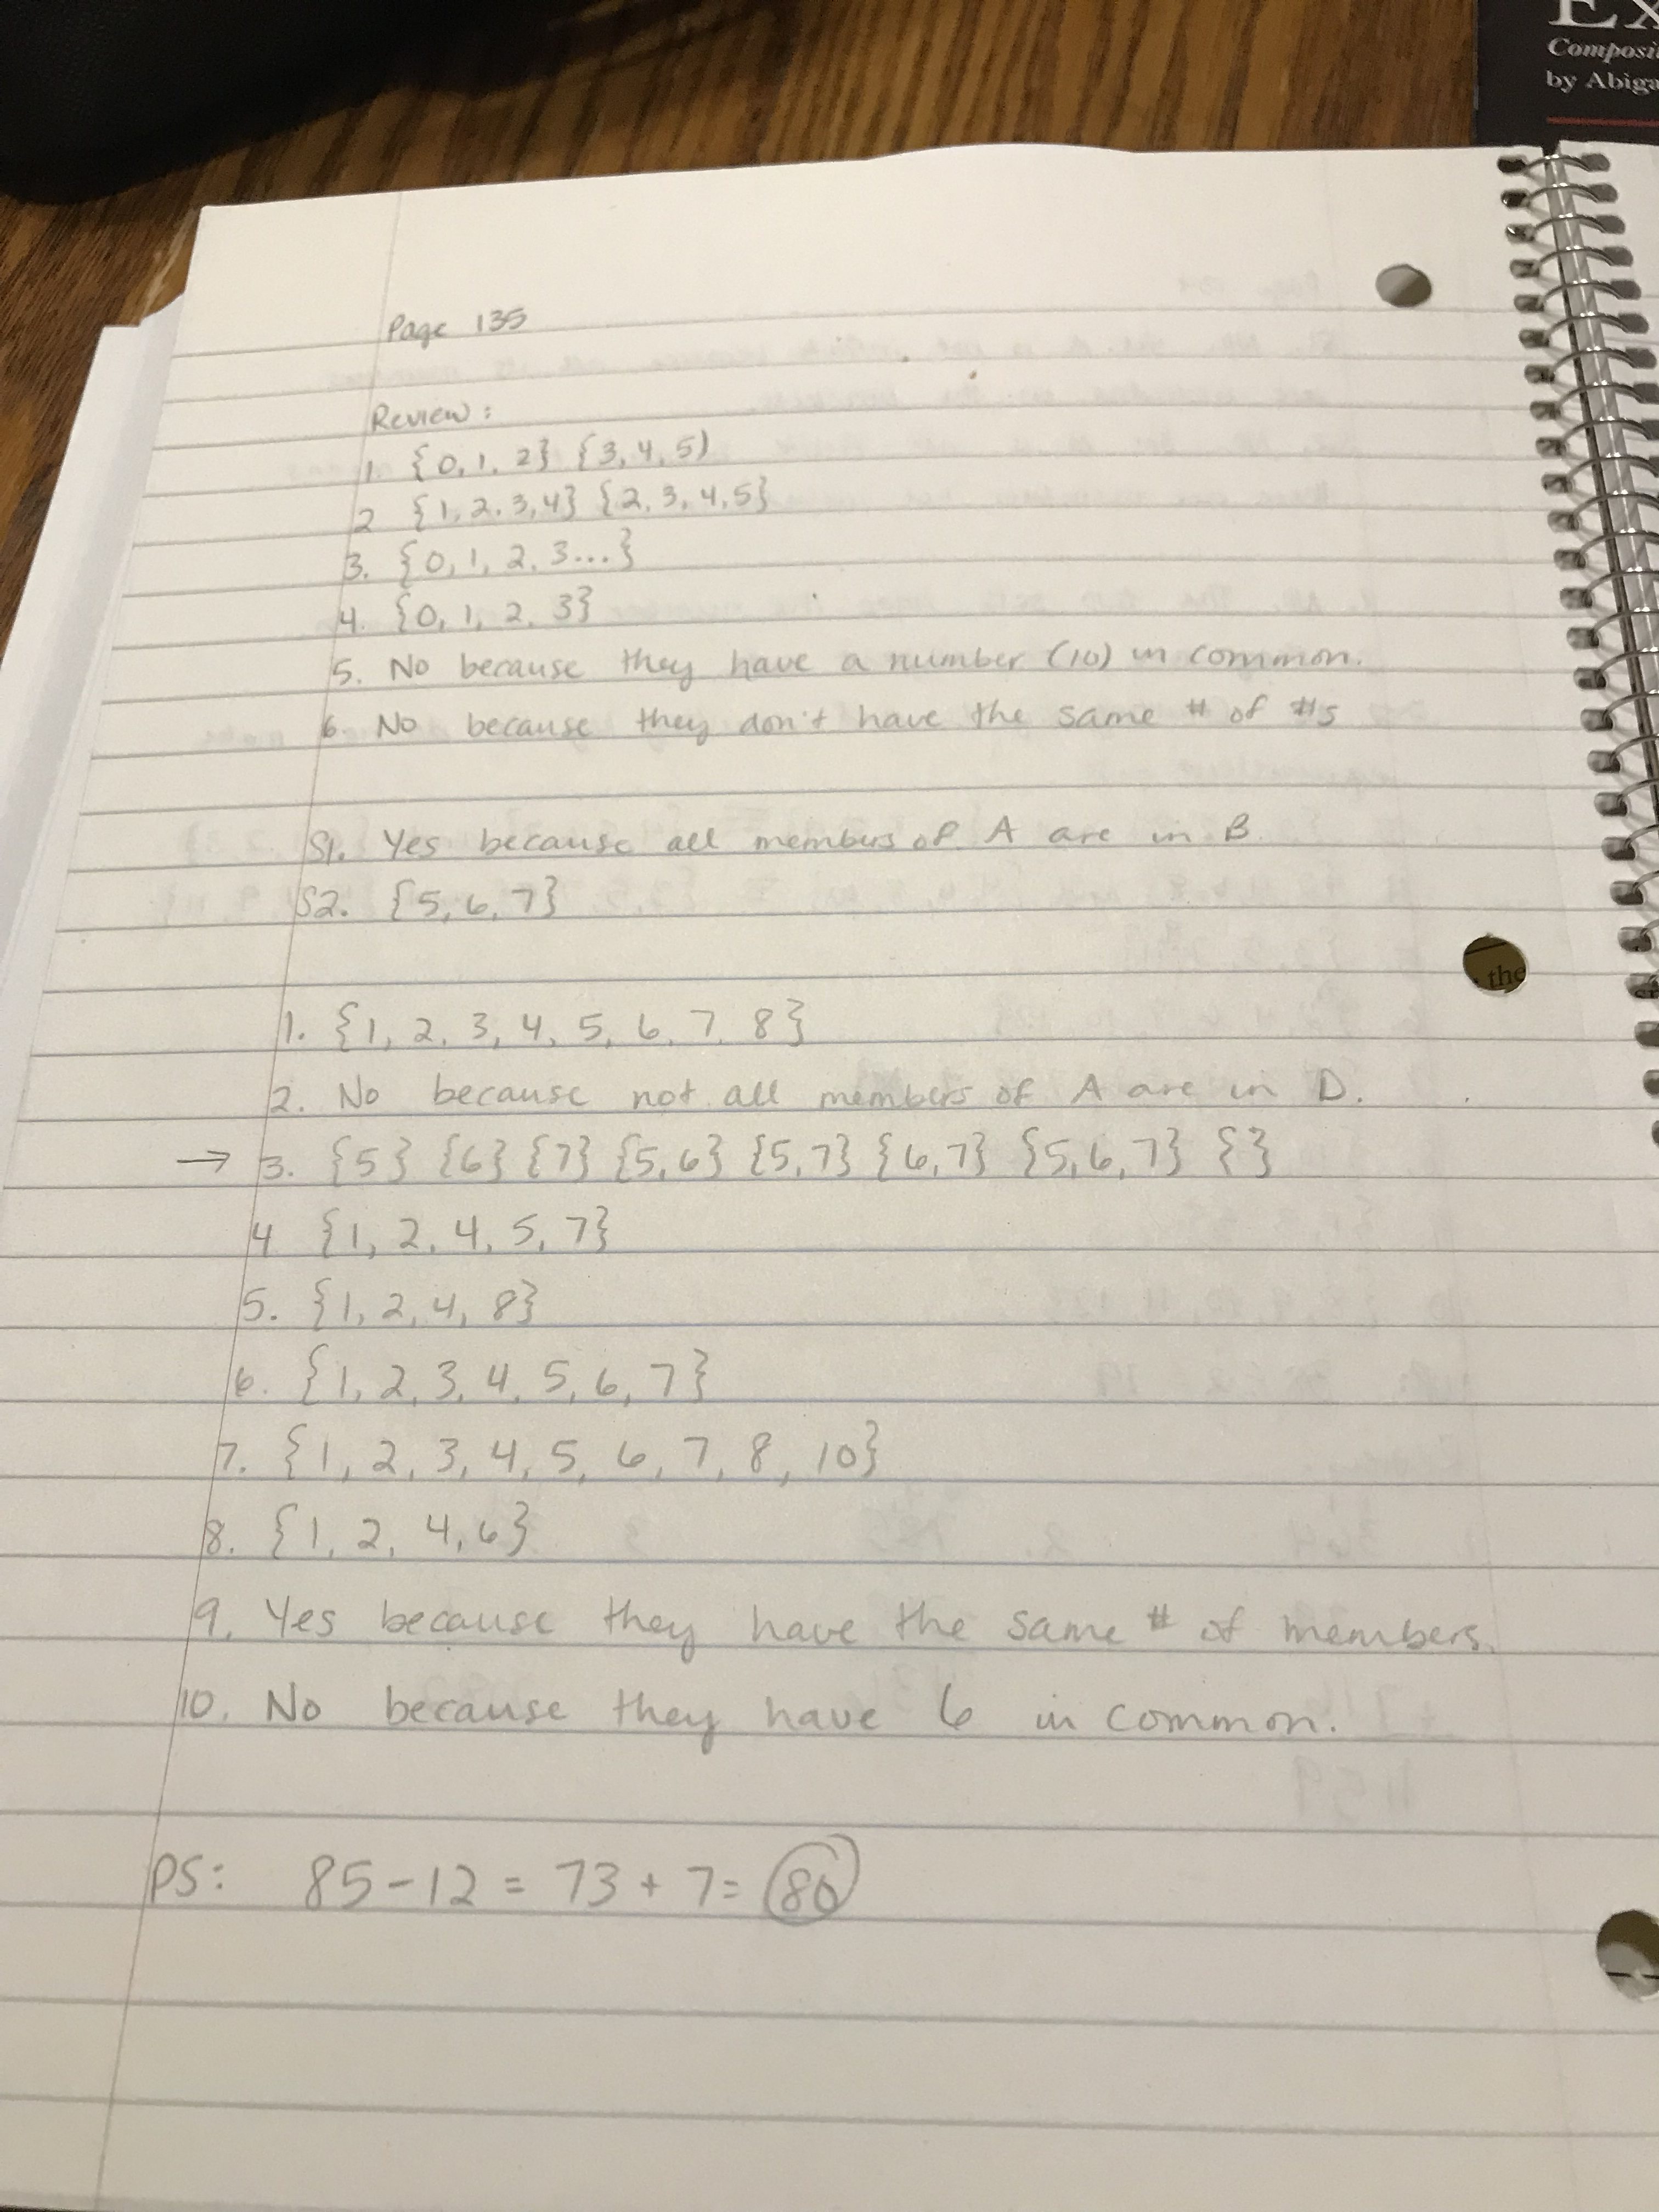 Ex
Composi
by Abiga
Page 135
Review:
1. {0, 1, 2} {3, 4, 5)
2 {1, 2, 3, 4} {2, 3, 4, 5}
3. {0, 1, 2, 3...}
4. {0, 1, 2, 3}
5. No because they have a number (10) in common.
6. No because they don't have the same # of #s
S1. Yes because all members of A are in B.
S2. {5, 6, 7}
the
1. {1, 2, 3, 4, 5, 6, 7, 8}
2. No because not all members of A are in D.
→ 3. {5} {6} {7} {5, 6} {5, 7} {6, 7} {5, 6, 7} { }
4 {1, 2, 4, 5, 7}
5. {1, 2, 4, 8}
6. {1, 2, 3, 4, 5, 6, 7}
7. {1, 2, 3, 4, 5, 6, 7, 8, 10}
8. {1, 2, 4, 6}
9. Yes because they have the same # of members.
10. No because they have 6 in common.
PS: 85 - 12 = 73 + 7 = 80